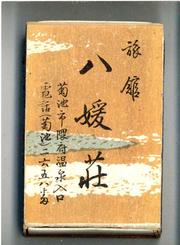 旅館
八媛荘
菊池市隈府温泉入口
電話(菊池)二六五八番